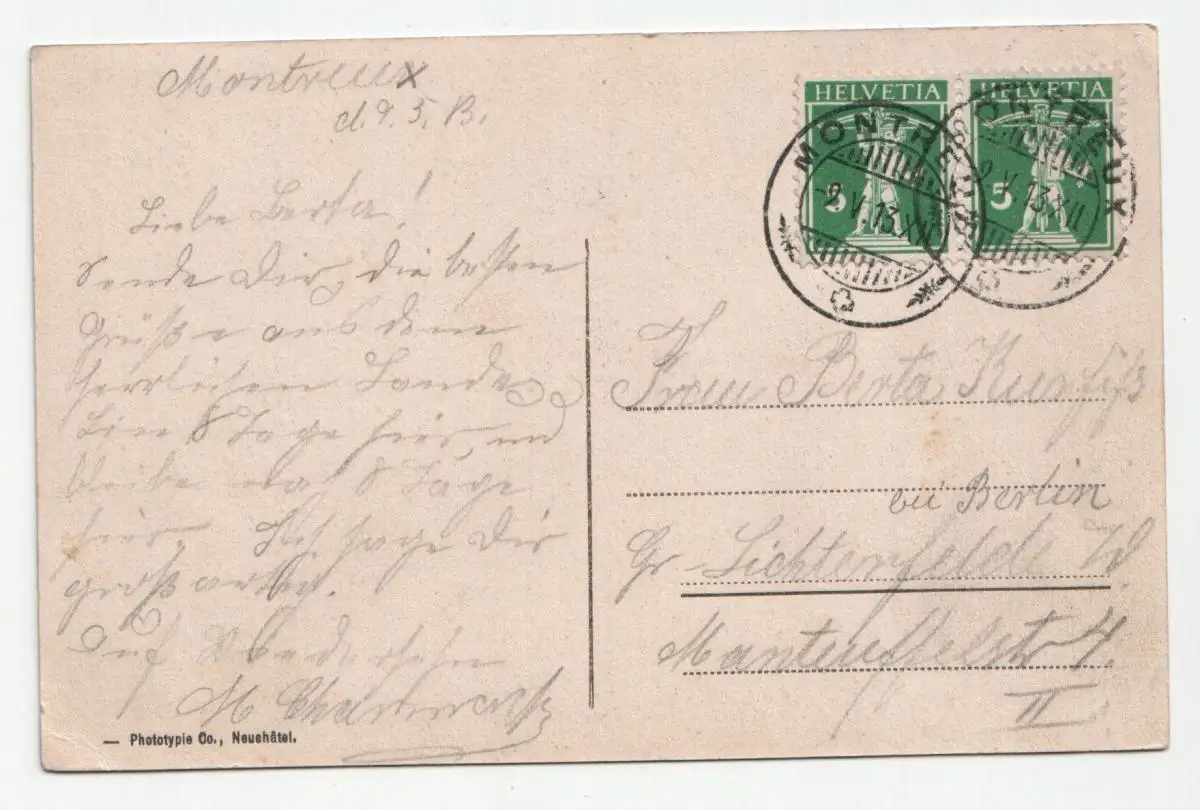 Montreux
d. 9. 5. 13.
Liebe Berta!
sende Dir, die besten
Grüße aus dem
herrlichen Lande
bin 8 Tage hier, und
bleibe noch 8 Tage
hier. Ich sage Dir
großartig.
Auf Wiedersehn
M
— Phototypie Co., Neuchâtel.
HELVETIA HELVETIA
5 5
MONTREUX
-9.V.13.XII
MONTREUX
-9.V.13.XII
Frau Berta
bei Berlin
Gr-Lichterfelde W.
Manteuffelstr 4.
II